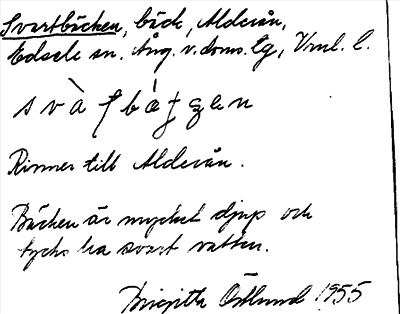 Svartbäcken, bäck, Alderån,
Edsele sn. Ång. v. doms. lg, Vnl. l.
Rinner till Alderån.
Bäcken är mycket djup och
tycks ha svart vatten.
Birgitta Östlund 1955